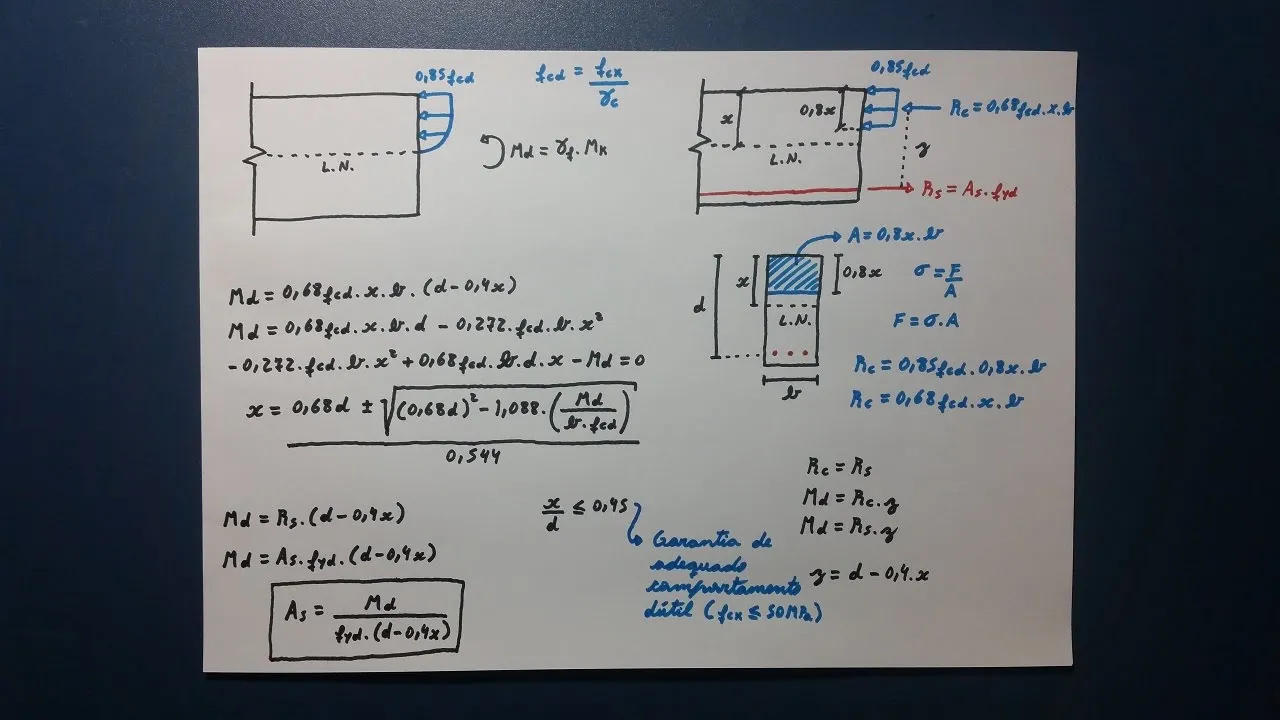 0,85fcd
fcd = fck / γc
Md = γf . Mk
L.N.
0,85fcd
x
0,8x
Rc = 0,68fcd.x.b
z
L.N.
Rs = As.fyd
A = 0,8x.b
d
x
0,8x
L.N.
b
σ = F / A
F = σ.A
Rc = 0,85fcd.0,8x.b
Rc = 0,68fcd.x.b
Md = 0,68fcd.x.b.(d-0,4x)
Md = 0,68fcd.x.b.d - 0,272.fcd.b.x²
-0,272.fcd.b.x² + 0,68fcd.b.d.x - Md = 0
x = 0,68d ± √((0,68d)² - 1,088.(Md / b.fcd)) / 0,544
Md = Rs.(d-0,4x)
Md = As.fyd.(d-0,4x)
As = Md / fyd.(d-0,4x)
x / d ≤ 0,45
Garantia de
adequado
comportamento
dútil (fck ≤ 50MPa)
Rc = Rs
Md = Rc.z
Md = Rs.z
z = d - 0,4.x